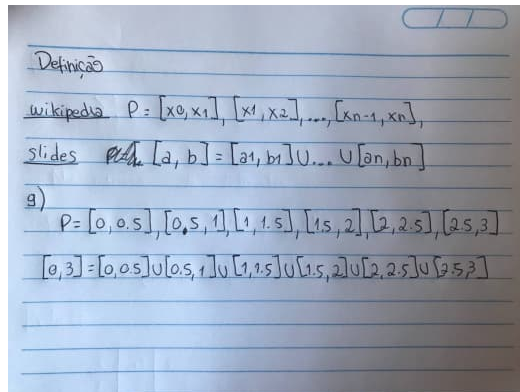 Definição
wikipedia P = [x0, x1], [x1, x2], ..., [xn-1, xn],
slides [a, b] = [a1, b1] ∪ ... ∪ [an, bn]
g)
P = [0, 0.5], [0.5, 1], [1, 1.5], [1.5, 2], [2, 2.5], [2.5, 3]
[0, 3] = [0, 0.5] ∪ [0.5, 1] ∪ [1, 1.5] ∪ [1.5, 2] ∪ [2, 2.5] ∪ [2.5, 3]